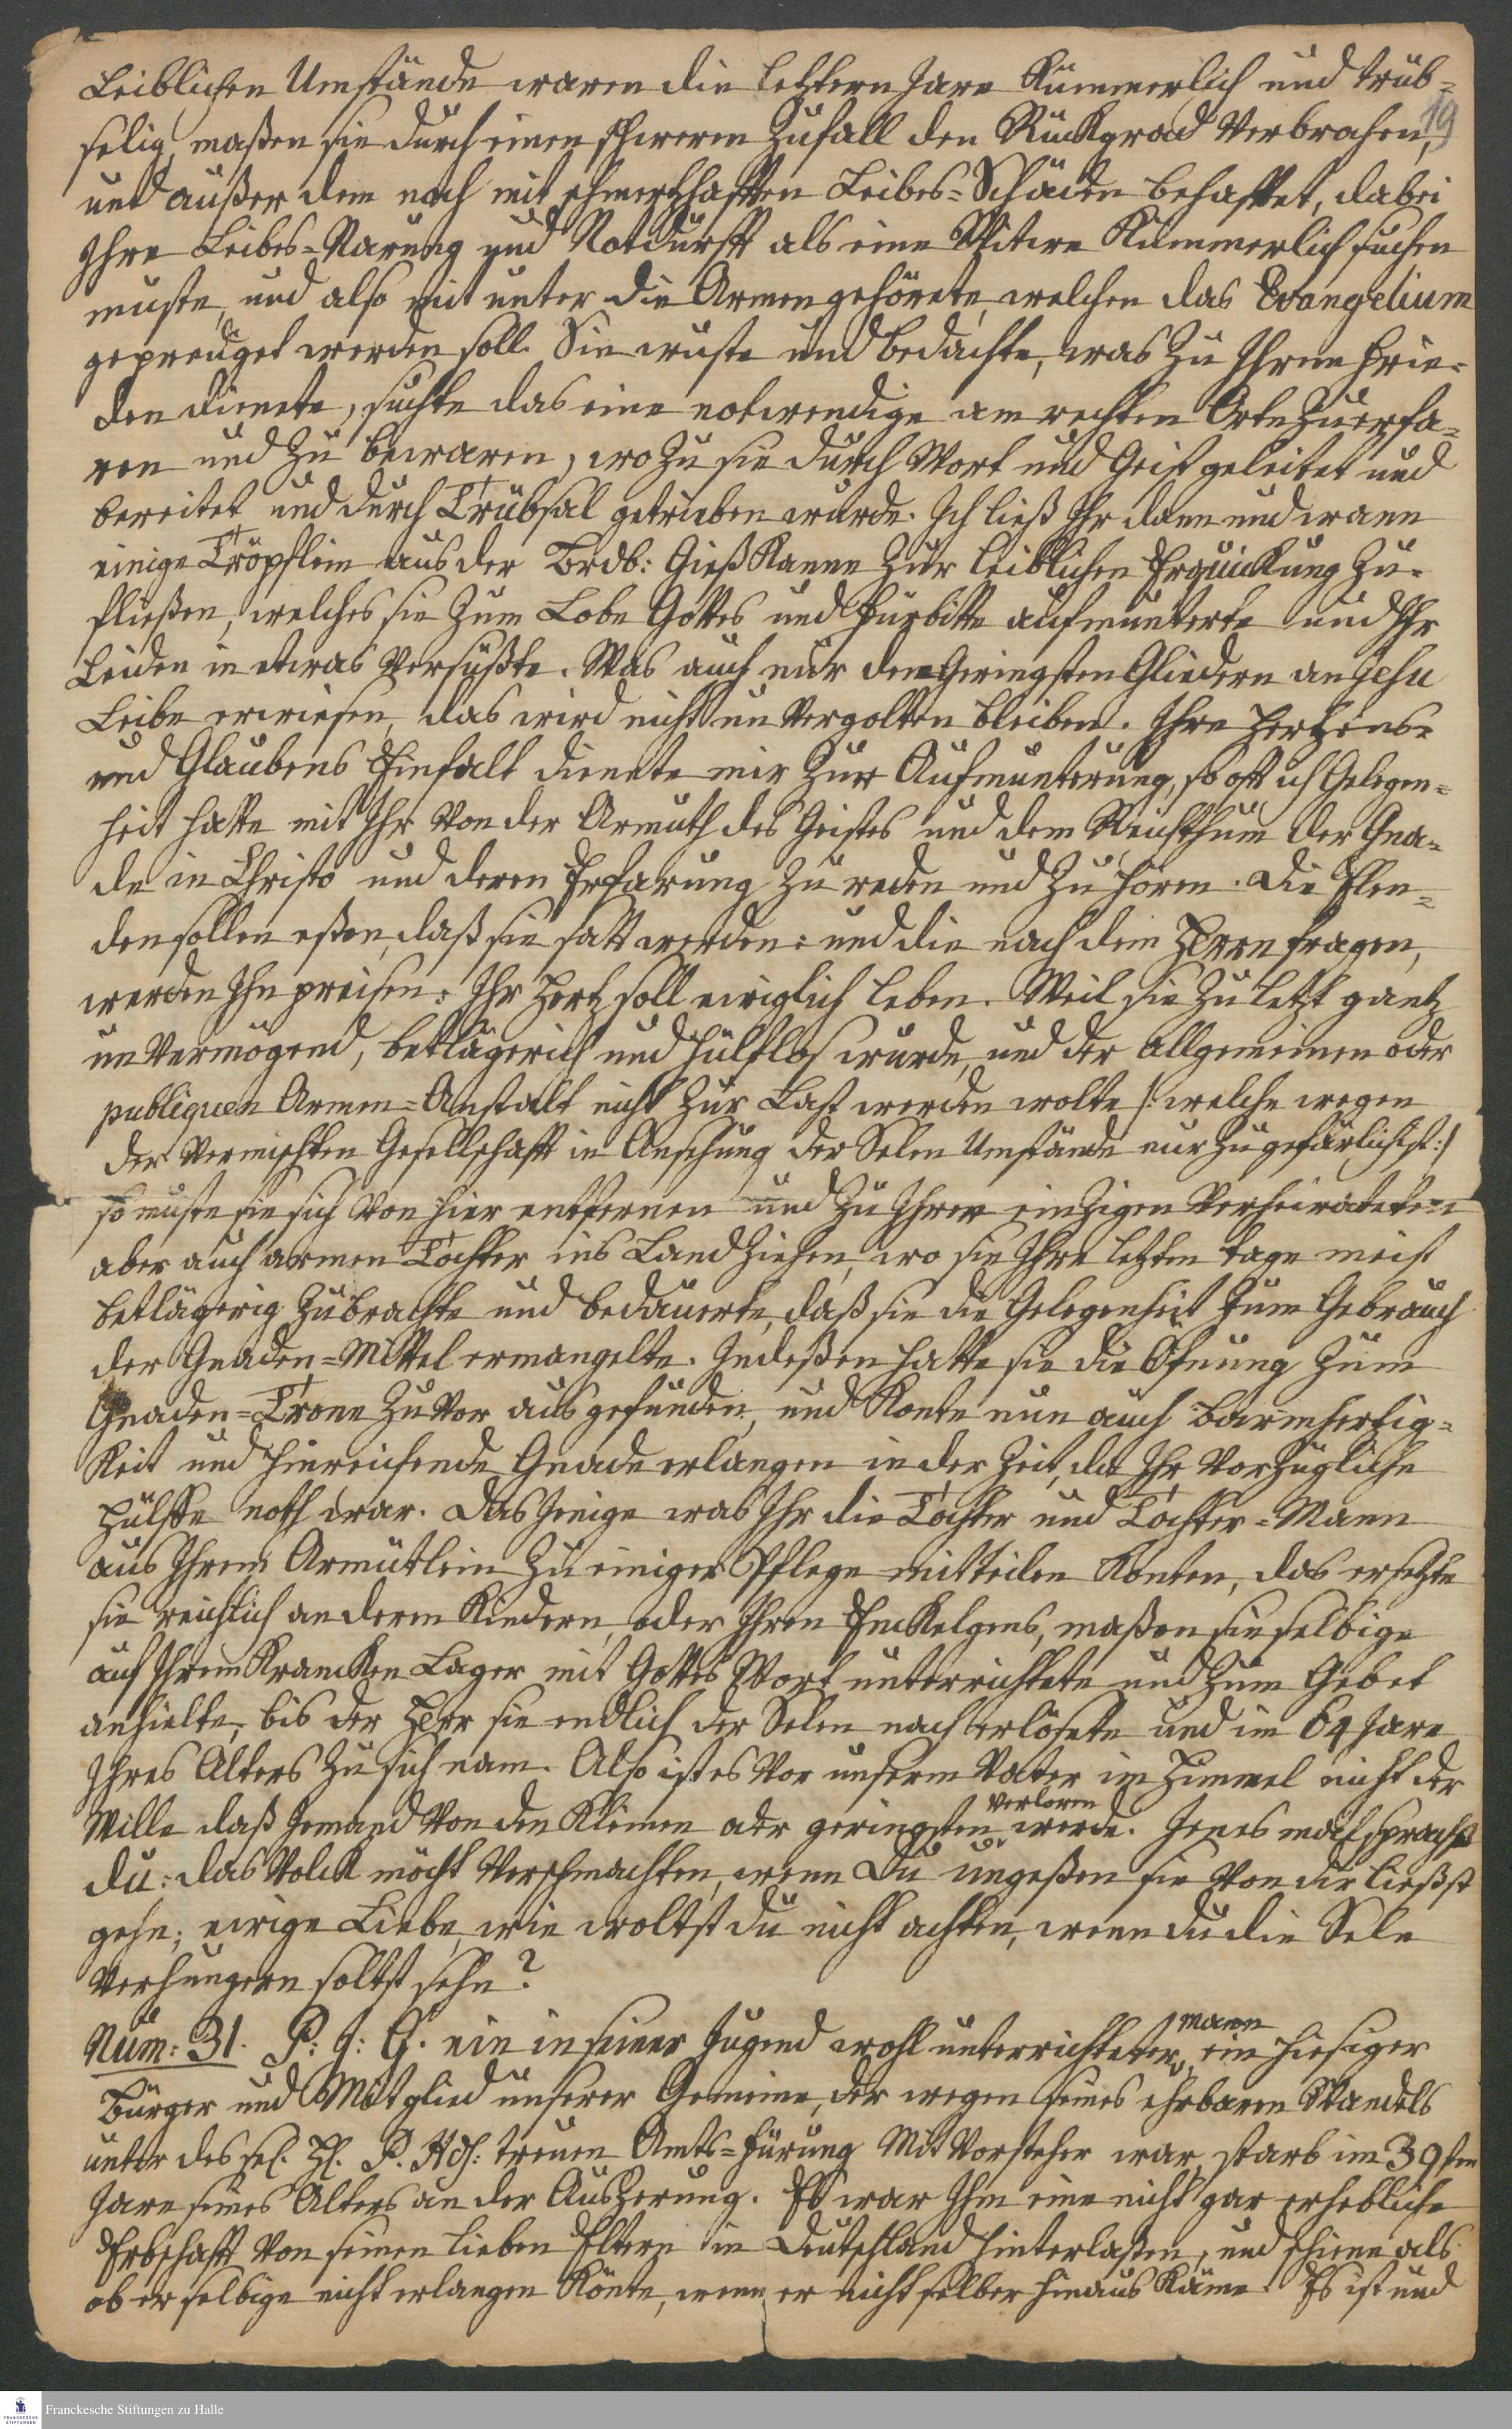 Leiblichen Umstände waren die letztern Jare Kümmerlich und trüb-
19
selig, maßen sie durch einen schweren Zufall den Rückgrad Verbrochen,
und außer dem noch mit schmertzhafften Leibes-Schäden behafftet, dabei
Ihre Leibes-Narung und Notdurfft als eine Witwe Kümmerlich suchen
muste, und also mit unter die Armen gehörete, welchen das Evangelium
geprediget werden soll. Sie wuste und bedachte, was Zu Ihrem Frie-
den dienete, suchte das eine notwendige am rechten Orte Zu erfa-
ren und Zu bewaren, wo Zu sie durch Wort und Geist geleitet und
bereitet und durch Trübsal getrieben wurde. Ich ließ Ihr dann und wann
einige Tröpflein aus der Brdb: GießKanne Zur leiblichen ErquicKung Zu-
fließen, welches sie Zum Lobe Gottes und Fürbitte aufmunterte und Ihr
Leiden in etwas Versüßte. Was auch nur den Geringsten Gliedern an Jesu
Leibe erwiesen, das wird nicht un Vergolten bleiben. Ihre Hertzens-
und Glaubens Einfalt dienete mir Zur Aufmunterung, so oft ich Gelegen-
heit hatte mit Ihr Von der Armuth des Geistes und dem Reichthum der Gna-
de in Christo und deren Erfarung Zu reden und Zu hören. Die Elen-
den sollen eßen, daß sie satt werden: und die nach dem HErrn fragen,
werden Ihn preisen: Ihr Hertz soll ewiglich leben. Weil sie Zu letzt gantz
un Vermögend, betlägerich und hülflos wurde, und der allgemeinen oder
publiquen Armen-Anstalt nicht Zur Last werden wolte /: welche wegen
der Vermischten Gesellschafft in Ansehung der Selen Umstände nur Zu gefärlich ist :/
so muste sie sich Von hier entfernen und Zu Ihrer einzigen Verheirateten
aber auch armen Tochter ins Land Ziehen, wo sie Ihre letzten tage meist
betlägerig Zubrachte und bedauerte, daß sie die Gelegenheit Zum Gebrauch
der Gnaden-Mittel ermangelte. Indeßen hatte sie die Öfnung Zum
Gnaden-Trone Zu Vor aus gefunden, und Konte nun auch Barmhertzig-
Keit und hinreichende Gnade erlangen in der Zeit, da Ihr Vorzügliche
Hülffe noth war. Das Jenige was Ihr die Tochter und Tochter-Mann
aus Ihrem Armütlein Zu einiger Pflege mitteilen Konten, das ersetzte
sie reichlich an deren Kindern, oder Ihren EncKelgens, maßen sie selbige
auf Ihrem KrancKen Lager mit Gottes Wort unterrichtete und Zum Gebet
anhielte, bis der HErr sie endlich der Selen nach erlösete und im 64 Jare
Ihres Alters Zu sich nam. Also ist es Vor unserm Vater im Himmel nicht der
Wille daß Jemand Von den Kleinen oder geringsten verloren werde. Jenes mal sprachst
du: das Volck möcht Verschmachten, wenn Du ungeßen sie Von dir ließst
gehn; ewige Liebe, wie woltst du nicht achten, wenn du die Sele
Verhungern soltst sehn?
Num: 31. P: J: G. ein in seiner Jugend wohl unterrichteter mann, ein hiesiger
Bürger und Mitglied unserer Gemeine, der wegen seines ehrbaren Wandels
unter des sel. H. P. Hdsch: treuen Amts-Fürung Mit Vorsteher war, starb im 39sten
Jare seines Alters an der AusZerung. Es war Ihm eine nicht gar erhebliche
Erbschafft Von seinen lieben Eltern in Deutschland hinterlaßen, und schiene als
ob er selbige nicht erlangen Könte, wenn er nicht selber hinaus Käme. Es ist und
Franckesche Stiftungen zu Halle